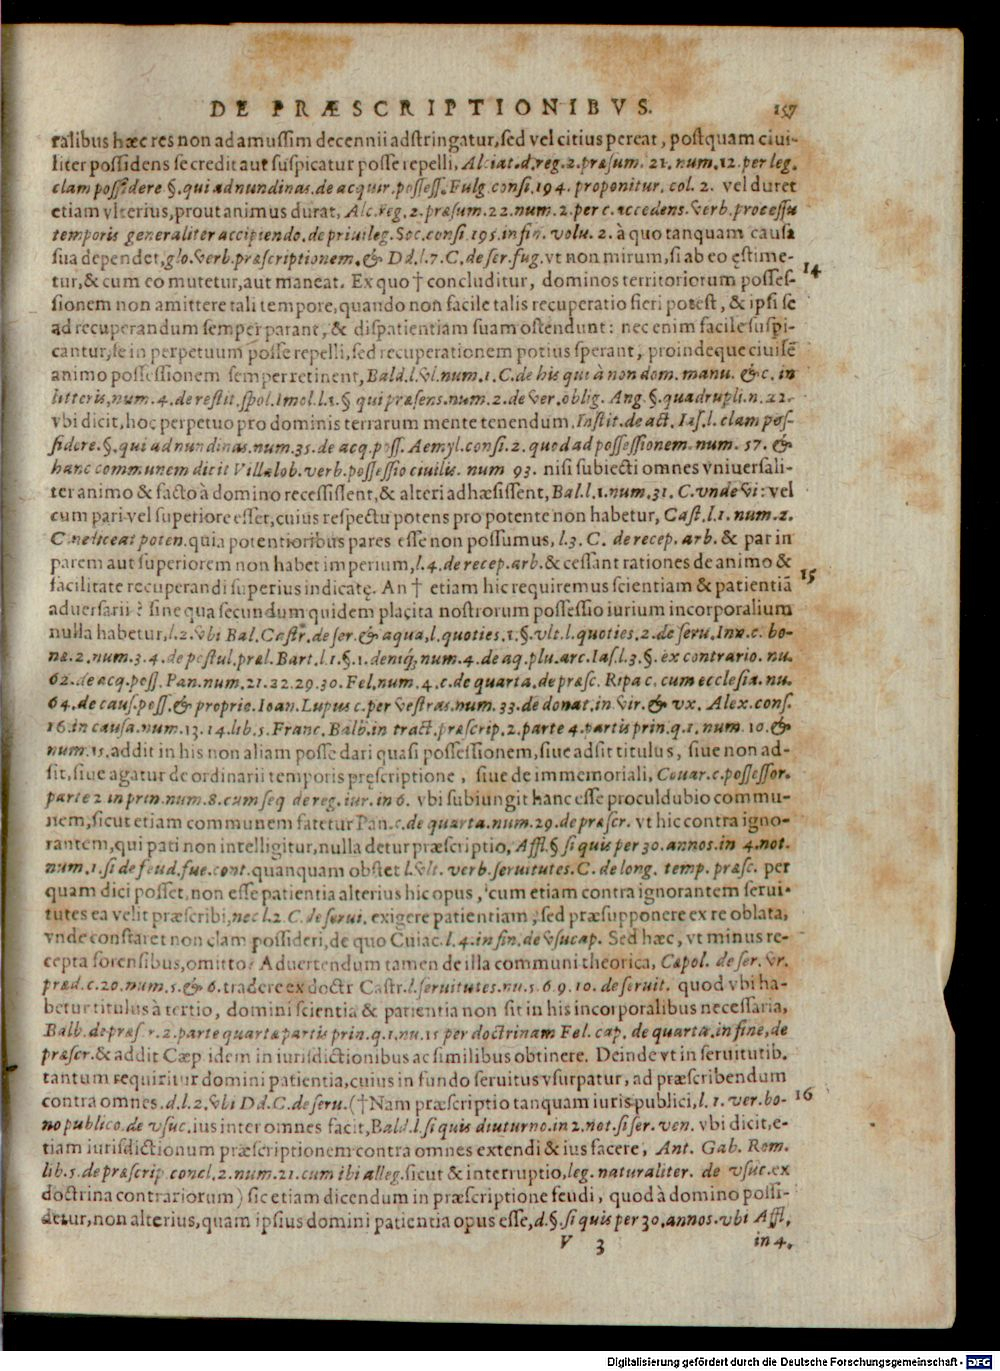 DE PRÆSCRIPTIONIBVS. 157
ralibus hæc res non ad amussim decennii adstringatur, sed vel citius pereat, postquam ciui-
liter possidens se credit aut suspicatur posse repelli, Alciat. d. reg. 2. præsum. 21. num. 12. per leg.
clam possidere §. qui ad nundinas. de acquir. possess. Fulg. consi. 194. proponitur. col. 2. vel duret
etiam vlterius, prout animus durat, Alc. reg. 2. præsum. 22. num. 2. per c. accedens. verb. processu
temporis generaliter accipiendo. de priuileg. Soc. consi. 195. in fin. volu. 2. à quo tanquam causa
sua dependet, glo. verb. præscriptionem. & Dd. l. 7. C. de ser. fug. vt non mirum, si ab eo ęstime-
tur, & cum eo mutetur, aut maneat. Ex quo † concluditur, dominos territoriorum posses- 14
sionem non amittere tali tempore, quando non facile talis recuperatio fieri potest, & ipsi se
ad recuperandum semper parant, & dispatientiam suam ostendunt: nec enim facile suspi-
cantur, se in perpetuum posse repelli, sed recuperationem potius sperant, proindeque ciuilẽ
animo possessionem semper retinent, Bald. l. vl. num. 1. C. de his qui à non dom. manu. & c. in
litteris, num. 4. de restit. spol. Imol. l. 1. § qui præsens. num. 2. de ver. oblig. Ang. §. quadrupli. n. 22.
vbi dicit, hoc perpetuo pro dominis terrarum mente tenendum. Instit. de act. Ias. l. clam pos-
sidere. §. qui ad nundinas. num. 35. de acq. poss. Aemyl. consi. 2. quod ad possessionem. num. 57. &
hanc communem dicit Villalob. verb. possessio ciuilis. num 93. nisi subiecti omnes vniuersali-
ter animo & facto à domino recessissent, & alteri adhæsissent, Bal. l. 1. num. 31. C. vnde vi: vel
cum pari vel superiore esset, cuius respectu potens pro potente non habetur, Cast. l. 1. num. 2.
C. ne liceat poten. quia potentioribus pares esse non possumus, l. 3. C. de recep. arb. & par in
parem aut superiorem non habet imperium, l. 4. de recep. arb. & cessant rationes de animo &
facilitate recuperandi superius indicatę. An † etiam hic requiremus scientiam & patientiã 15
aduersarii? sine qua secundum quidem placita nostrorum possessio iurium incorporalium
nulla habetur, l. 2. vbi Bal. Castr. de ser. & aqua, l. quoties. 1. §. vlt. l. quoties. 2. de seru. Inn. c. bo-
næ. 2. num. 3. 4. de postul. præl. Bart. l. 1. §. 1. deniq; num. 4. de aq. plu. arc. Ias. l. 3. §. ex contrario. nu.
62. de acq. poss. Pan. num. 21. 22. 29. 30. Fel. num. 4. c. de quarta. de præsc. Ripa c. cum ecclesia. nu.
64. de caus. poss. & proprie. Ioan. Lupus c. per vestras. num. 33. de donat. in vir. & vx. Alex. cons.
16. in causa. num. 13. 14. lib. 5. Franc. Balb. in tract. præscrip. 2. parte 4. partis prin. q. 1. num. 10. &
num. 15. addit in his non aliam posse dari quasi possessionem, siue adsit titulus, siue non ad-
sit, siue agatur de ordinarii temporis pręscriptione, siue de immemoriali, Couar. c. possessor.
parte 2 in prin. num. 8. cum seq de reg. iur. in 6. vbi subiungit hanc esse proculdubio commu-
nem, sicut etiam communem fatetur Pan. c. de quarta. num. 29. de præscr. vt hic contra igno-
rantem, qui pati non intelligitur, nulla detur præscriptio, Affl. § si quis per 30. annos. in 4. not.
num. 1. si de feud. fue. cont. quanquam obstet l. vlt. verb. seruitutes. C. de long. temp. præsc. per
quam dici posset, non esse patientia alterius hic opus, cum etiam contra ignorantem serui-
tutes ea velit præscribi, nec l. 2. C. de serui. exigere patientiam, sed præsupponere ex re oblata,
vnde constaret non clam possideri, de quo Cuiac. l. 4. in fin. de vsucap. Sed hæc, vt minus re-
cepta forensibus, omitto. Aduertendum tamen de illa communi theorica, Cæpol. de ser. vr.
præd. c. 20. num. 5. & 6. tradere ex doctr Castr. l. seruitutes. nu. 5. 6. 9. 10. de seruit. quod vbi ha-
betur titulus à tertio, domini scientia & patientia non sit in his incorporalibus necessaria,
Balb. de præscr. 2. parte quartæ partis prin. q. 1. nu. 11 per doctrinam Fel. cap. de quarta. in fine, de
præscr. & addit Cæp. idem in iurisdictionibus ac similibus obtinere. Deinde vt in seruitutib.
tantum requiritur domini patientia, cuius in fundo seruitus vsurpatur, ad præscribendum
contra omnes. d. l. 2. vbi Dd. C. de seru. († Nam præscriptio tanquam iuris publici, l. 1. ver. bo- 16
no publico. de vsuc. ius inter omnes facit, Bald. l. si quis diuturno. in 2. not. si ser. ven. vbi dicit, e-
tiam iurisdictionum præscriptionem contra omnes extendi & ius facere, Ant. Gab. Rom.
lib. 5. de præscrip. concl. 2. num. 21. cum ibi alleg. sicut & interruptio, leg. naturaliter. de vsuc. ex
doctrina contrariorum) sic etiam dicendum in præscriptione feudi, quod à domino possi-
detur, non alterius, quam ipsius domini patientia opus esse, d. §. si quis per 30. annos. vbi Affl.
V 3 in 4.
Digitalisierung gefördert durch die Deutsche Forschungsgemeinschaft - DFG